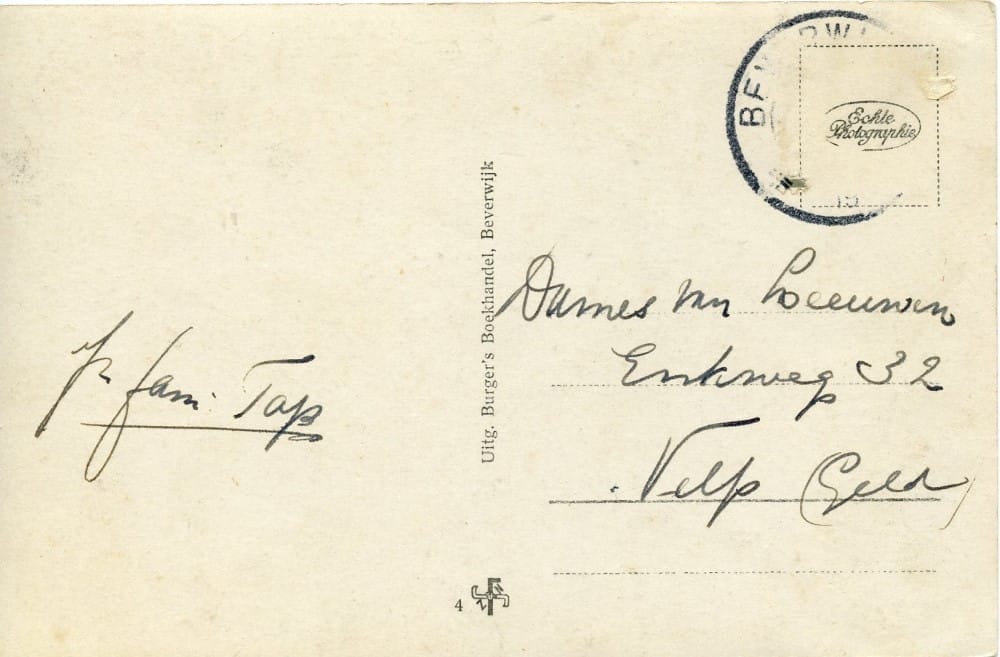 BEVERWI
Echte
Photographie
Uitg. Burger's Boekhandel, Beverwijk
Dames van Leeuwen
Enkweg 32
Velp (Geld)
fam. Tap
4